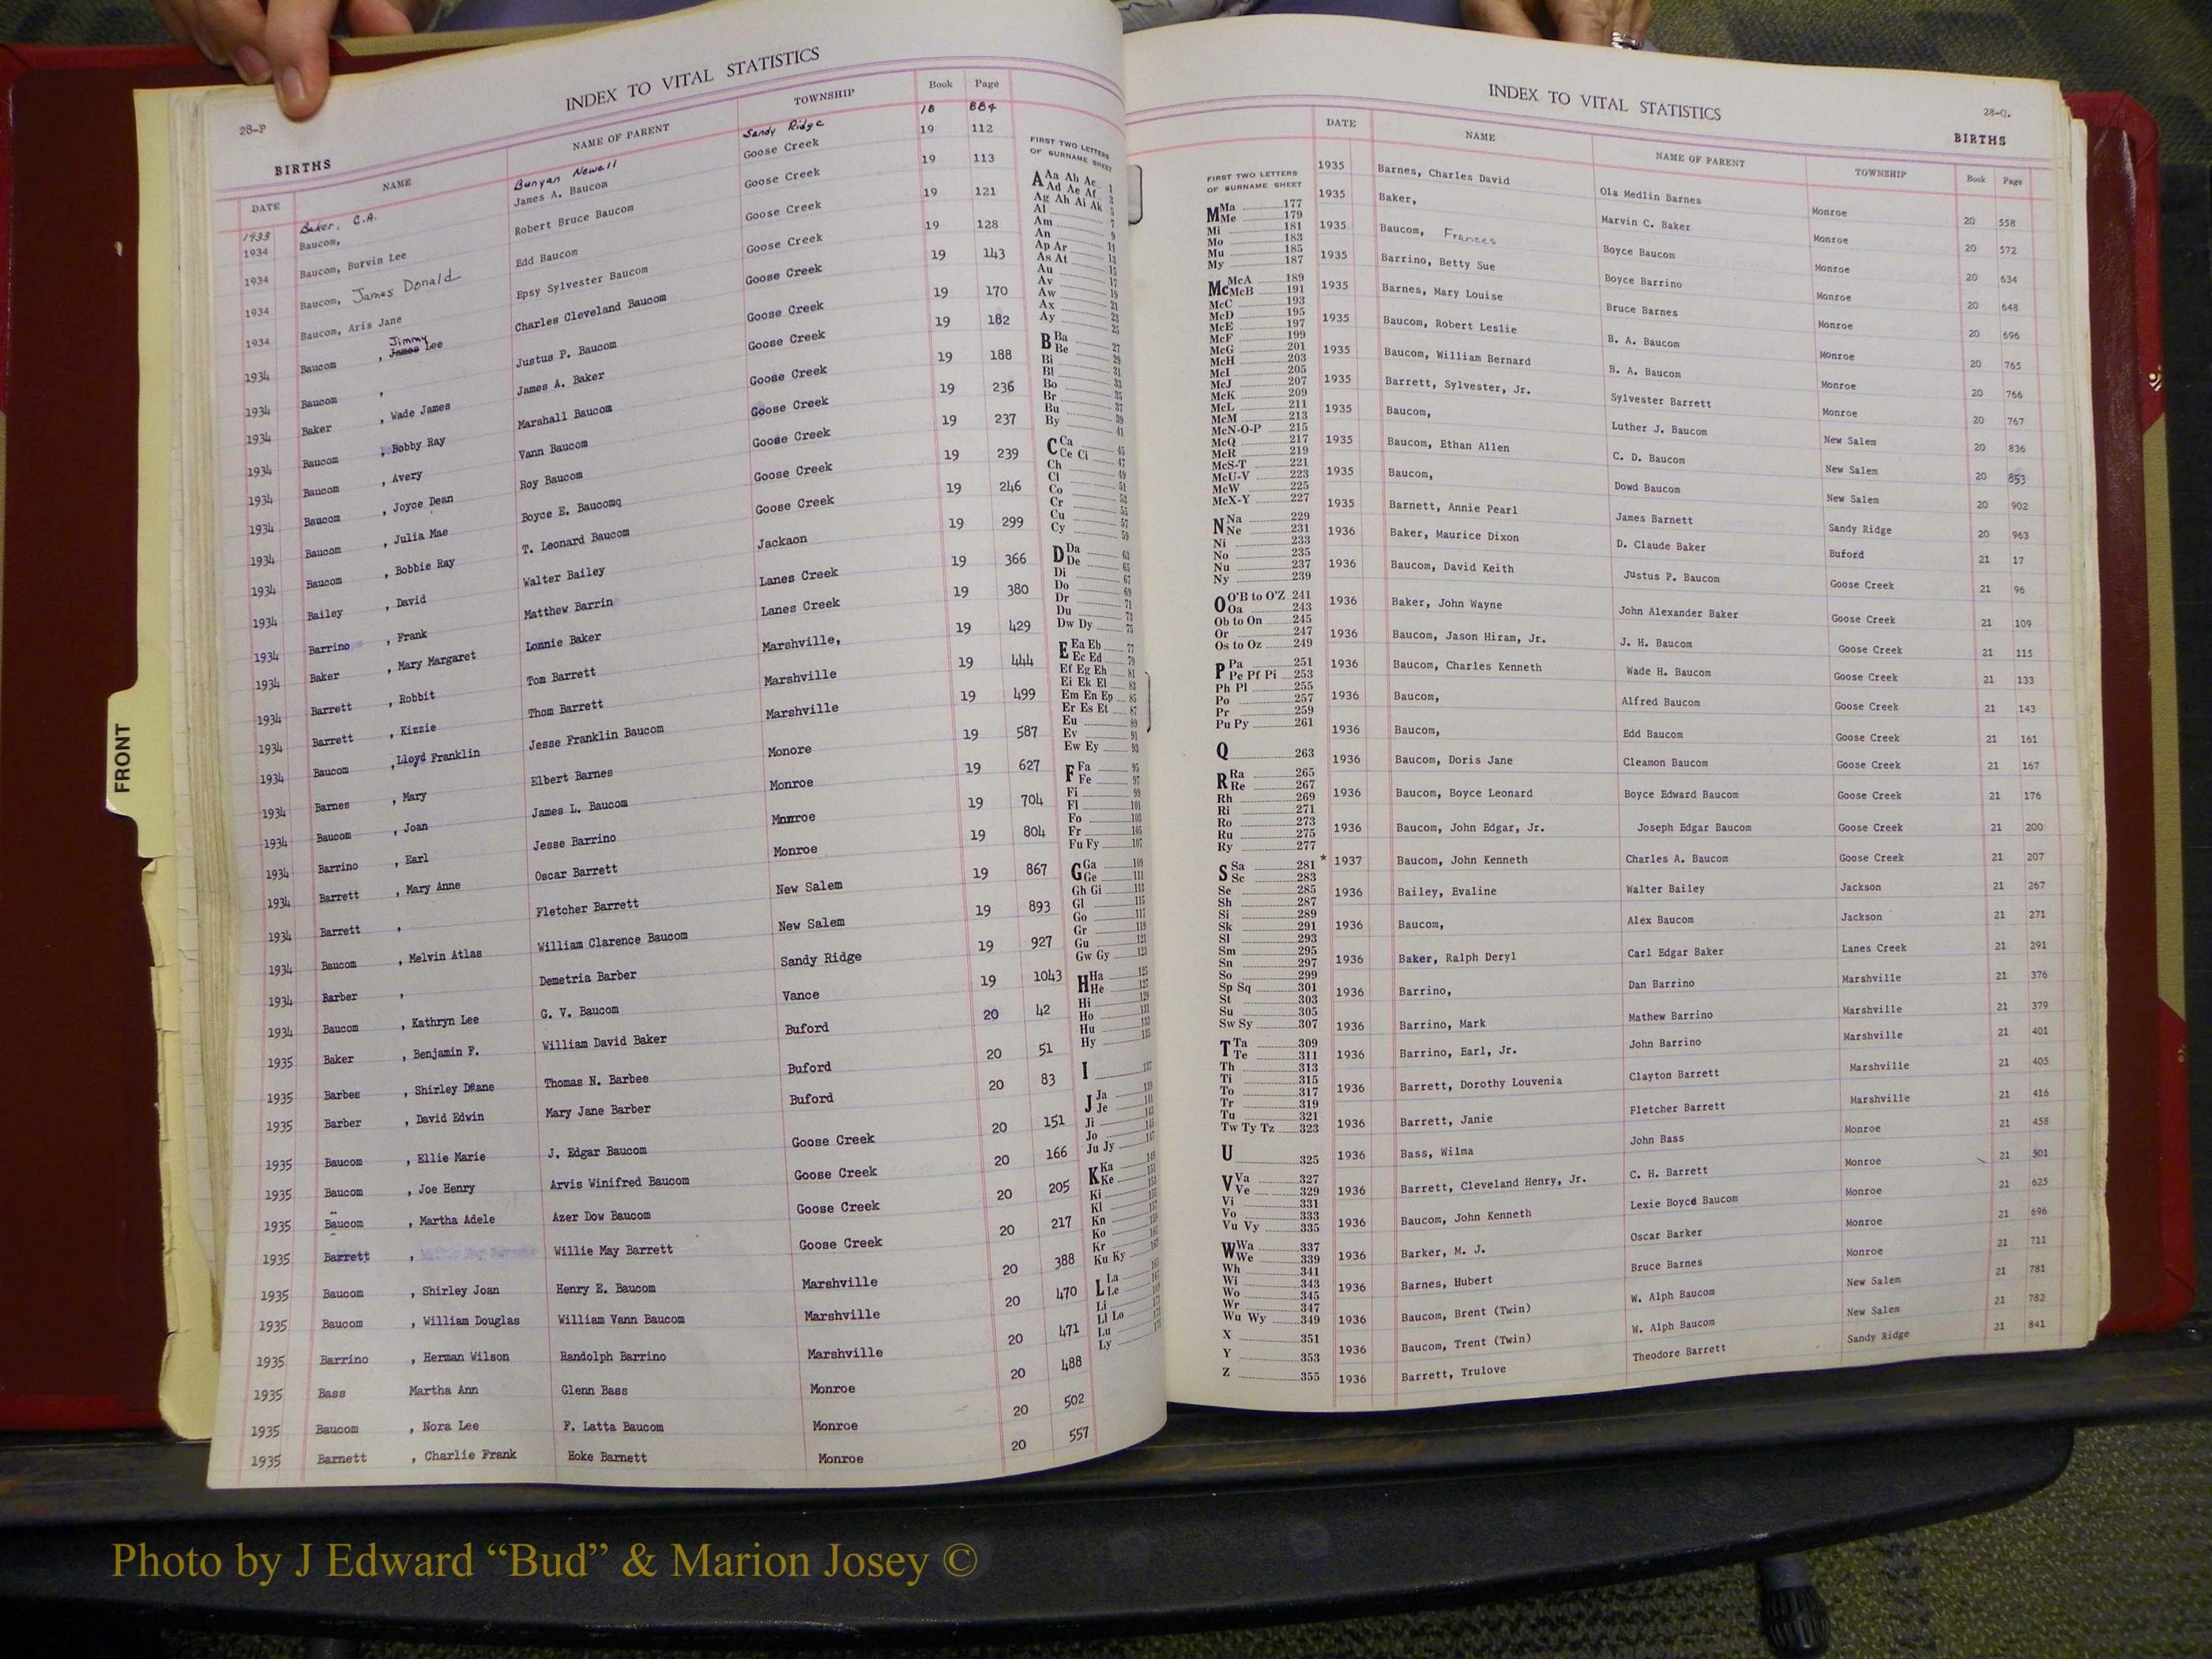 28-P
INDEX TO VITAL STATISTICS
BIRTHS
DATE NAME NAME OF PARENT TOWNSHIP Book Page
1933 Baker, C.A. Bunyan Newell Sandy Ridge 18 884
1934 Baucom, James A. Baucom Goose Creek 19 112
1934 Baucom, Burvin Lee Robert Bruce Baucom Goose Creek 19 113
1934 Baucom, James Donald Edd Baucom Goose Creek 19 121
1934 Baucom, Aris Jane Epsy Sylvester Baucom Goose Creek 19 128
Jimmy
1934 Baucom , James Lee Charles Cleveland Baucom Goose Creek 19 143
1934 Baucom , Justus P. Baucom Goose Creek 19 170
1934 Baker , Wade James James A. Baker Goose Creek 19 182
1934 Baucom , Bobby Ray Marshall Baucom Goose Creek 19 188
1934 Baucom , Avery Vann Baucom Goose Creek 19 236
1934 Baucom , Joyce Dean Roy Baucom Goose Creek 19 237
1934 Baucom , Julia Mae Boyce E. Baucomq Goose Creek 19 239
1934 Baucom , Bobbie Ray T. Leonard Baucom Goose Creek 19 246
1934 Bailey , David Walter Bailey Jackaon 19 299
1934 Barrino , Frank Matthew Barrin Lanes Creek 19 366
1934 Baker , Mary Margaret Lonnie Baker Lanes Creek 19 380
1934 Barrett , Robbit Tom Barrett Marshville, 19 429
1934 Barrett , Kizzie Thom Barrett Marshville 19 444
1934 Baucom , Lloyd Franklin Jesse Franklin Baucom Marshville 19 499
1934 Barnes , Mary Elbert Barnes Monore 19 587
1934 Baucom , Joan James L. Baucom Monroe 19 627
1934 Barrino , Earl Jesse Barrino Mnnroe 19 704
1934 Barrett , Mary Anne Oscar Barrett Monroe 19 804
1934 Barrett , Fletcher Barrett New Salem 19 867
1934 Baucom , Melvin Atlas William Clarence Baucom New Salem 19 893
1934 Barber , Demetria Barber Sandy Ridge 19 927
1934 Baucom , Kathryn Lee G. V. Baucom Vance 19 1043
1935 Baker , Benjamin F. William David Baker Buford 20 42
1935 Barbee , Shirley Deane Thomas N. Barbee Buford 20 51
1935 Barber , David Edwin Mary Jane Barber Buford 20 83
1935 Baucom , Ellie Marie J. Edgar Baucom Goose Creek 20 151
1935 Baucom , Joe Henry Arvis Winifred Baucom Goose Creek 20 166
1935 Baucom , Martha Adele Azer Dow Baucom Goose Creek 20 205
1935 Barrett , Willie May Barrett Goose Creek 20 217
1935 Baucom , Shirley Joan Henry E. Baucom Marshville 20 388
1935 Baucom , William Douglas William Vann Baucom Marshville 20 470
1935 Barrino , Herman Wilson Randolph Barrino Marshville 20 471
1935 Bass Martha Ann Glenn Bass Monroe 20 488
1935 Baucom , Nora Lee F. Latta Baucom Monroe 20 502
1935 Barnett , Charlie Frank Hoke Barnett Monroe 20 557
FRONT
FIRST TWO LETTERS
OF SURNAME SHEET
A Aa Ab Ac 1
Ad Ae Af 3
Ag Ah Ai Ak 5
Al 7
Am 9
An 11
Ap Ar 13
As At 15
Au 17
Av 19
Aw 21
Ax 23
Ay 25
B Ba 27
Be 29
Bi 31
Bl 33
Bo 35
Br 37
Bu 39
By 41
C Ca 45
Ce Ci 47
Ch 49
Cl 51
Co 53
Cr 55
Cu 57
Cy 59
D Da 63
De 65
Di 67
Do 69
Dr 71
Du 73
Dw Dy 75
E Ea Eb 77
Ec Ed 79
Ef Eg Eh 81
Ei Ek El 83
Em En Ep 85
Er Es Et 87
Eu 89
Ev 91
Ew Ey 93
F Fa 95
Fe 97
Fi 99
Fl 101
Fo 103
Fr 105
Fu Fy 107
G Ga 109
Ge 111
Gh Gi 113
Gl 115
Go 117
Gr 119
Gu 121
Gw Gy 123
H Ha 125
He 127
Hi 129
Ho 131
Hu 133
Hy 135
I 137
J Ja 139
Je 141
Ji 143
Jo 145
Ju Jy 147
K Ka 149
Ke 151
Ki
Kl
Kn
Ko
Kr
Ku Ky
L La
Le
Li
Ll Lo
Lu
Ly
INDEX TO VITAL STATISTICS
28-Q.
BIRTHS
FIRST TWO LETTERS
OF SURNAME SHEET
M Ma 177
Me 179
Mi 181
Mo 183
Mu 185
My 187
Mc McA 189
McB 191
McC 193
McD 195
McE 197
McF 199
McG 201
McH 203
McI 205
McJ 207
McK 209
McL 211
McM 213
McN-O-P 215
McQ 217
McR 219
McS-T 221
McU-V 223
McW 225
McX-Y 227
N Na 229
Ne 231
Ni 233
No 235
Nu 237
Ny 239
O O'B to O'Z 241
Oa 243
Ob to On 245
Or 247
Os to Oz 249
P Pa 251
Pe Pf Pi 253
Ph Pl 255
Po 257
Pr 259
Pu Py 261
Q 263
R Ra 265
Re 267
Rh 269
Ri 271
Ro 273
Ru 275
Ry 277
S Sa 281
Sc 283
Se 285
Sh 287
Si 289
Sk 291
Sl 293
Sm 295
Sn 297
So 299
Sp Sq 301
St 303
Su 305
Sw Sy 307
T Ta 309
Te 311
Th 313
Ti 315
To 317
Tr 319
Tu 321
Tw Ty Tz 323
U 325
V Va 327
Ve 329
Vi 331
Vo 333
Vu Vy 335
W Wa 337
We 339
Wh 341
Wi 343
Wo 345
Wr 347
Wu Wy 349
X 351
Y 353
Z 355
DATE NAME NAME OF PARENT TOWNSHIP Book Page
1935 Barnes, Charles David Ola Medlin Barnes Monroe 20 558
1935 Baker, Marvin C. Baker Monroe 20 572
1935 Baucom, Frances Boyce Baucom Monroe 20 634
1935 Barrino, Betty Sue Boyce Barrino Monroe 20 648
1935 Barnes, Mary Louise Bruce Barnes Monroe 20 696
1935 Baucom, Robert Leslie B. A. Baucom Monroe 20 765
1935 Baucom, William Bernard B. A. Baucom Monroe 20 766
1935 Barrett, Sylvester, Jr. Sylvester Barrett Monroe 20 767
1935 Baucom, Luther J. Baucom New Salem 20 836
1935 Baucom, Ethan Allen C. D. Baucom New Salem 20 853
1935 Baucom, Dowd Baucom New Salem 20 902
1935 Barnett, Annie Pearl James Barnett Sandy Ridge 20 963
1936 Baker, Maurice Dixon D. Claude Baker Buford 21 17
1936 Baucom, David Keith Justus P. Baucom Goose Creek 21 96
1936 Baker, John Wayne John Alexander Baker Goose Creek 21 109
1936 Baucom, Jason Hiram, Jr. J. H. Baucom Goose Creek 21 115
1936 Baucom, Charles Kenneth Wade H. Baucom Goose Creek 21 133
1936 Baucom, Alfred Baucom Goose Creek 21 143
1936 Baucom, Edd Baucom Goose Creek 21 161
1936 Baucom, Doris Jane Cleamon Baucom Goose Creek 21 167
1936 Baucom, Boyce Leonard Boyce Edward Baucom Goose Creek 21 176
1936 Baucom, John Edgar, Jr. Joseph Edgar Baucom Goose Creek 21 200
* 1937 Baucom, John Kenneth Charles A. Baucom Goose Creek 21 207
1936 Bailey, Evaline Walter Bailey Jackson 21 267
1936 Baucom, Alex Baucom Jackson 21 271
1936 Baker, Ralph Deryl Carl Edgar Baker Lanes Creek 21 291
1936 Barrino, Dan Barrino Marshville 21 376
1936 Barrino, Mark Mathew Barrino Marshville 21 379
1936 Barrino, Earl, Jr. John Barrino Marshville 21 401
1936 Barrett, Dorothy Louvenia Clayton Barrett Marshville 21 405
1936 Barrett, Janie Fletcher Barrett Marshville 21 416
1936 Bass, Wilma John Bass Monroe 21 458
1936 Barrett, Cleveland Henry, Jr. C. H. Barrett Monroe 21 501
1936 Baucom, John Kenneth Lexie Boyce Baucom Monroe 21 625
1936 Barker, M. J. Oscar Barker Monroe 21 696
1936 Barnes, Hubert Bruce Barnes Monroe 21 711
1936 Baucom, Brent (Twin) W. Alph Baucom New Salem 21 781
1936 Baucom, Trent (Twin) W. Alph Baucom New Salem 21 782
1936 Barrett, Trulove Theodore Barrett Sandy Ridge 21 841
Photo by J Edward “Bud” & Marion Josey ©